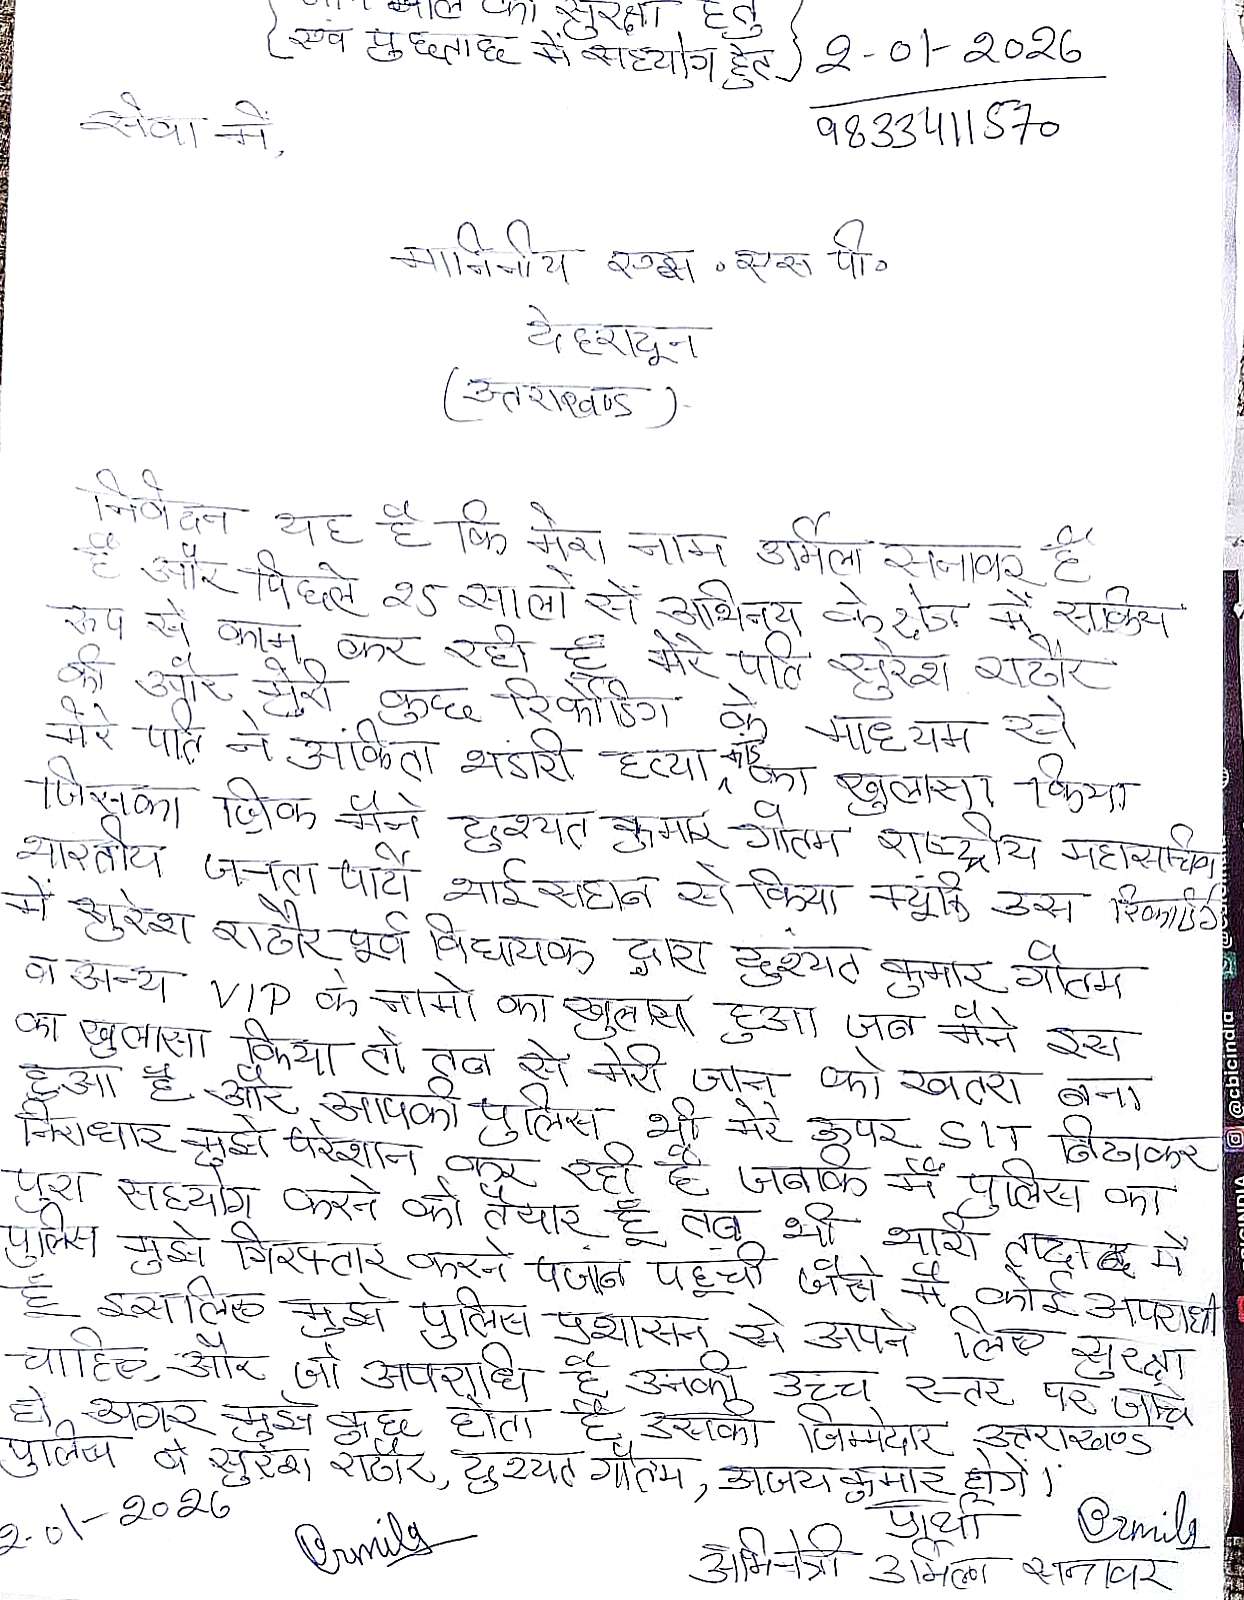 जान माल की सुरक्षा हेतु
एवं पुछताछ में सहयोग हेतु
2-01-2026
9833411570
सेवा में,
माननिीय एस॰एस पी॰
देहरादून
(उत्तराखण्ड)
निवेदन यह है कि मेरा नाम उर्मिला सनावर है
है और पिछले 25 सालों सें अभिनय के क्षेत्र में सक्रिय
रूप सें काम कर रही हूँ मेरे पति सुरेश राठौर
की और मेरी कुछ रिकोर्डिंग के माध्यम से
मेरे पति ने अंकिता भंडारी हत्या कांड का खुलासा किया
जिसका ज़िक मैंने दुश्यत कुमार गौतम राष्ट्रीय महासचिव
भारतीय जनता पार्टी भाई सहाब से किया क्यूंकि उस रिकार्डिंग
में सुरेश राठौर पूर्व विधायक द्वारा दुश्यंत कुमार गौतम
व अन्य VIP के नामों का खुलासा हुआ जब मैंने इस
का खुलासा किया तो तब से मेरी जान को खतरा बना
हुआ है और आपकी पुलिस भी मेरे ऊपर SIT बिठाकर
निराधार मुझे परेशान कर रही है जबकि मैं पुलिस का
पुरा सहयोग करने को तैयार हूँ तब भी भारी तादाद में
पुलिस मुझे गिरफ्तार करने पंजाब पहूंची जैसे मैं कोई अपराधी
हूँ इसलिए मुझे पुलिस प्रशासन से अपने लिए सुरक्षा
चाहिए और जो अपराधि है उनकी उच्च स्तर पर जांच
हो अगर मुझे कुछ होता है उसकी जिम्मेदार उत्तराखण्ड
पुलिस व सुरेश राठौर, दुश्यत गौतम, अजय कुमार होगें।
2-01-2026
प्रार्थी
Urmila
Urmila
अभिनेत्री उर्मिला सनावर
@cbicindia